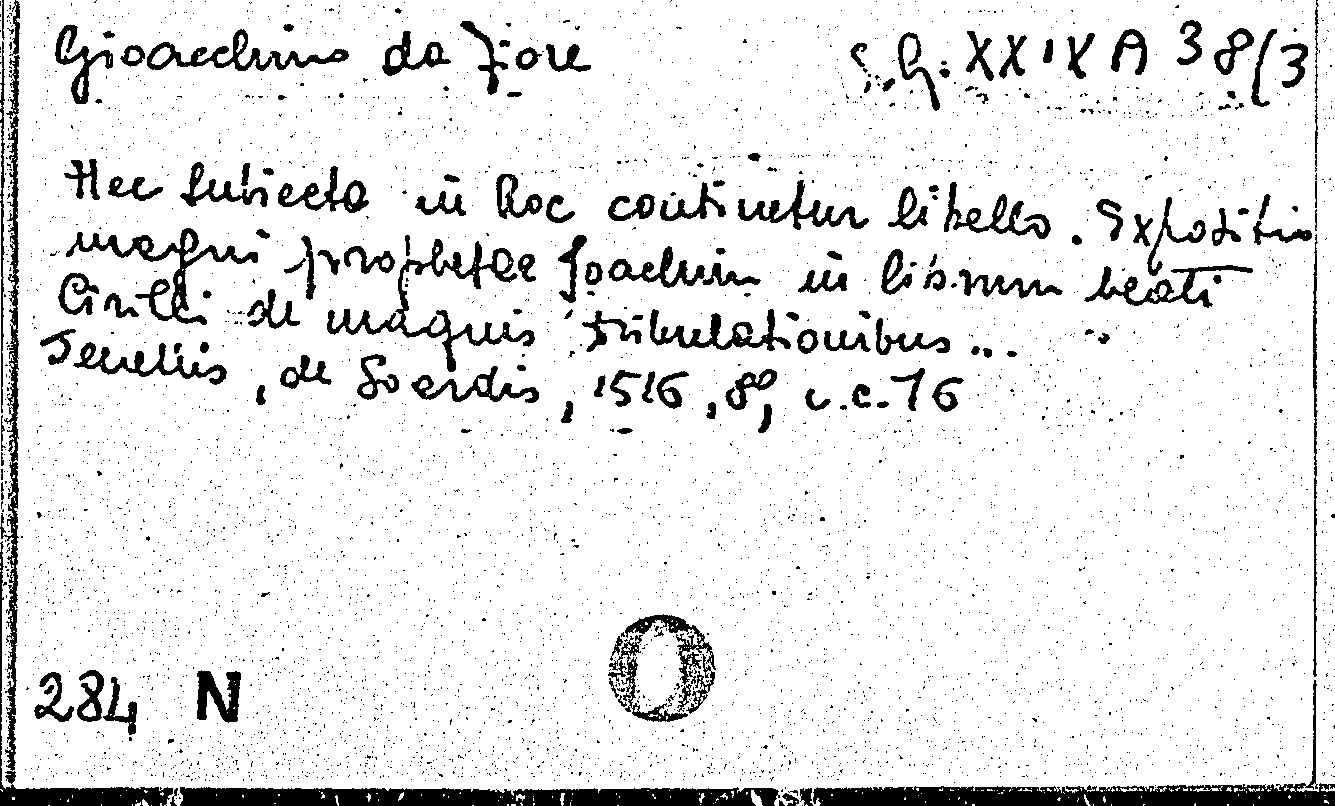 Gioacchino da Fiore S.Q. XXIX A 38/3
Hec subiecta in hoc continetur libello. Expositio
magni prophetae Joachim in librum beati
Cirilli de magnis tribulationibus...
Venetiis, de Soardis, 1516, 8º, c.c. 76
284 N